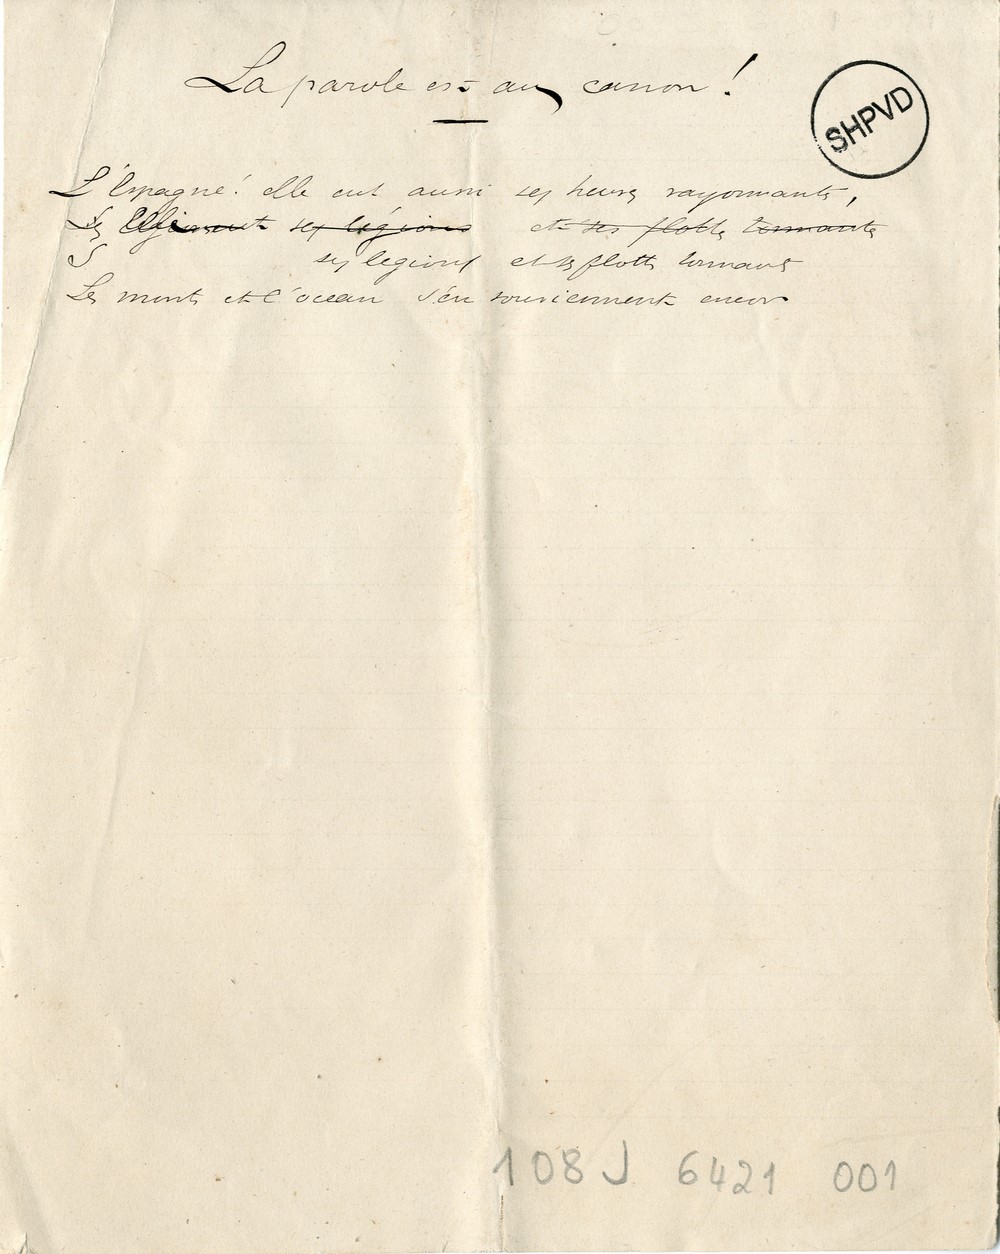 La parole est au canon !
SHPVD
L'Espagne ! elle eut aussi ses heures rayonnantes,
ses légions et ses flottes tonnantes
S ses légions et ses flottes tonnantes
Les monts et l'océan s'en souviennent encor
108 J 6421 001